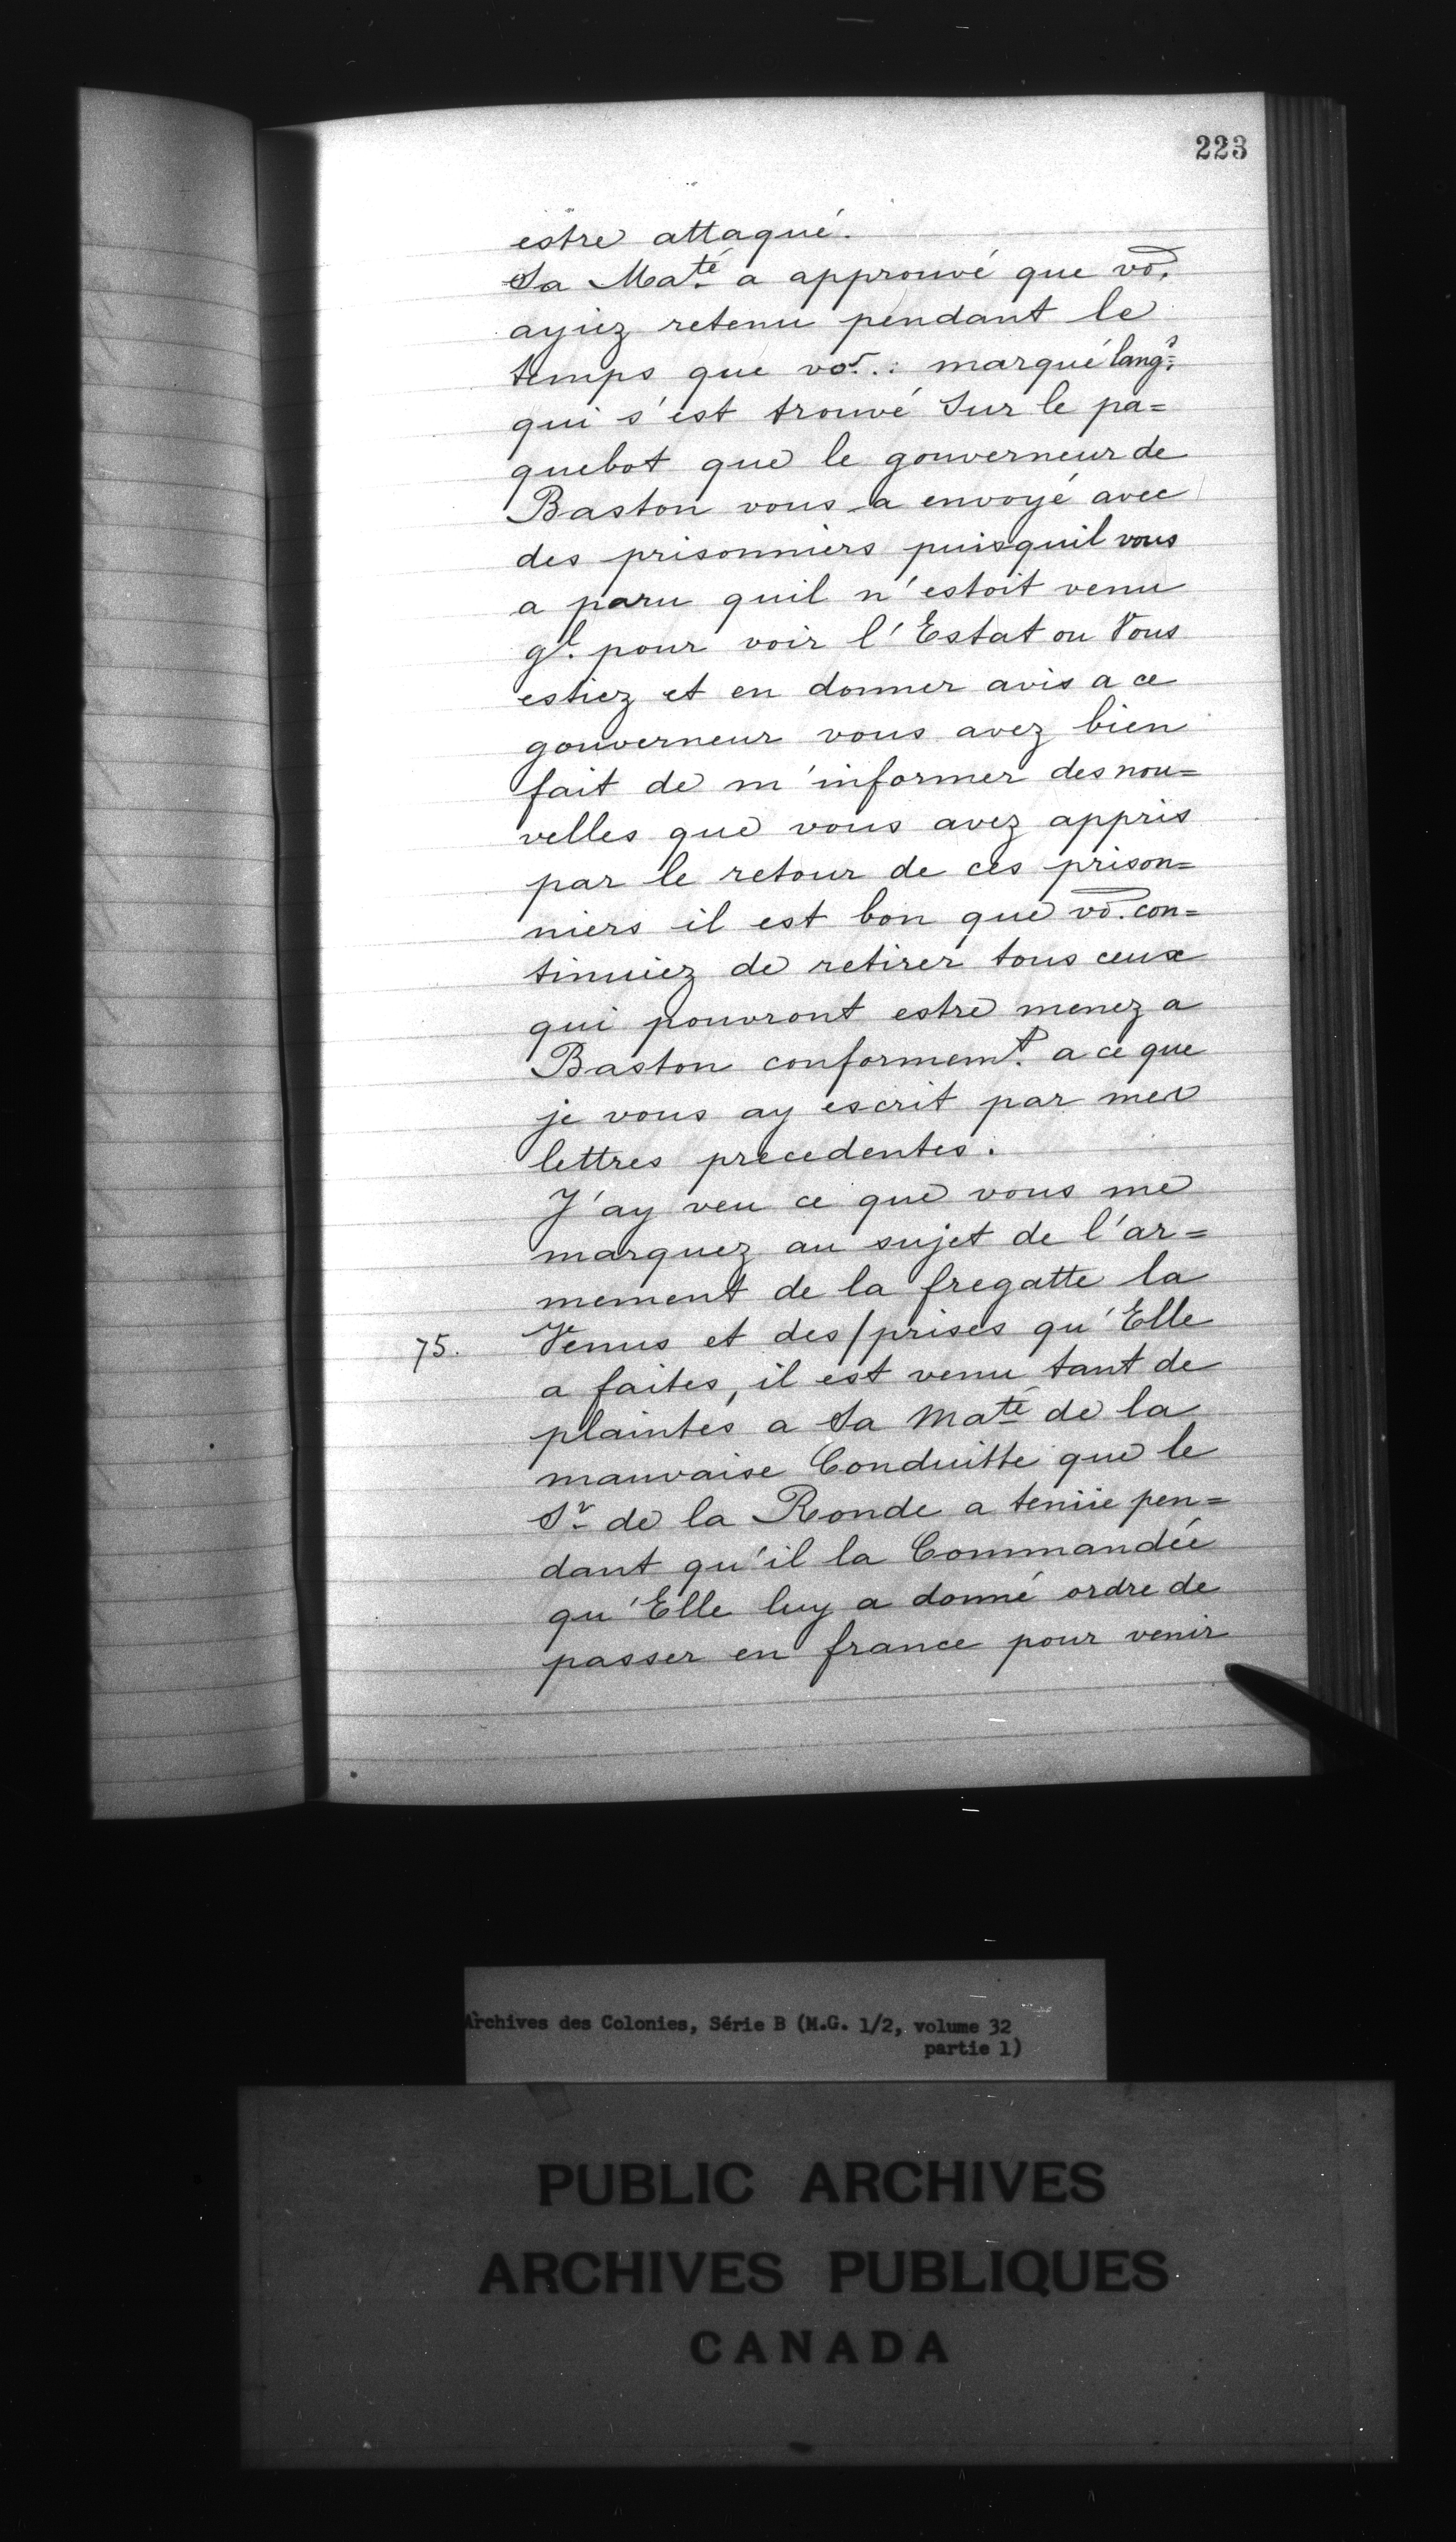 223
estre attaqué.
Sa Ma.té a approuvé que vo.
ayiez retenu pendant le
temps que vo... marqué lang.s
qui s'est trouvé Sur le pa=
quebot que le gouverneur de
Baston vous a envoyé avec
des prisonniers puisquil vous
a paru quil n'estoit venu
pour voir l'Estat ou Vous
estiez et en donner avis a ce
gouverneur vous avez bien
fait de m'informer des nou=
velles que vous avez appris
par le retour de ces prison=
niers il est bon que vo. con=
tinuiez de retirer tous ceux
qui pouvront estre menez a
Baston conformem.t a ce que
je vous ay escrit par mes
lettres precedentes.
J'ay veu ce que vous me
marquez au sujet de l'ar=
mement de la fregatte la
75. Venus et des/prises qu'Elle
a faites, il est venu tant de
plaintes a Sa Maté de la
mauvaise Conduitte que le
Sr de la Ronde a tenüe pen=
dant qu'il la Commandée
qu'Elle luy a donné ordre de
passer en france pour venir
Archives des Colonies, Série B (M.G. 1/2, volume 32
partie 1)
PUBLIC ARCHIVES
ARCHIVES PUBLIQUES
CANADA